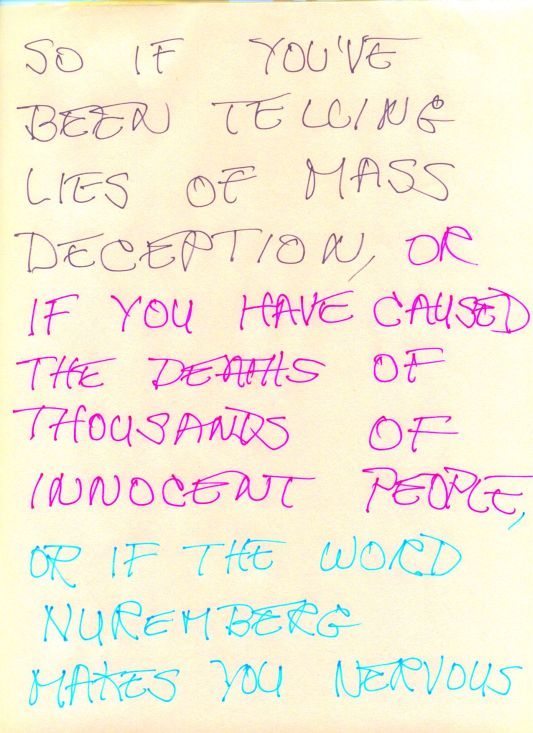 SO IF YOU'VE
BEEN TELLING
LIES OF MASS
DECEPTION, OR
IF YOU HAVE CAUSED
THE DEATHS OF
THOUSANDS OF
INNOCENT PEOPLE,
OR IF THE WORD
NUREMBERG
MAKES YOU NERVOUS